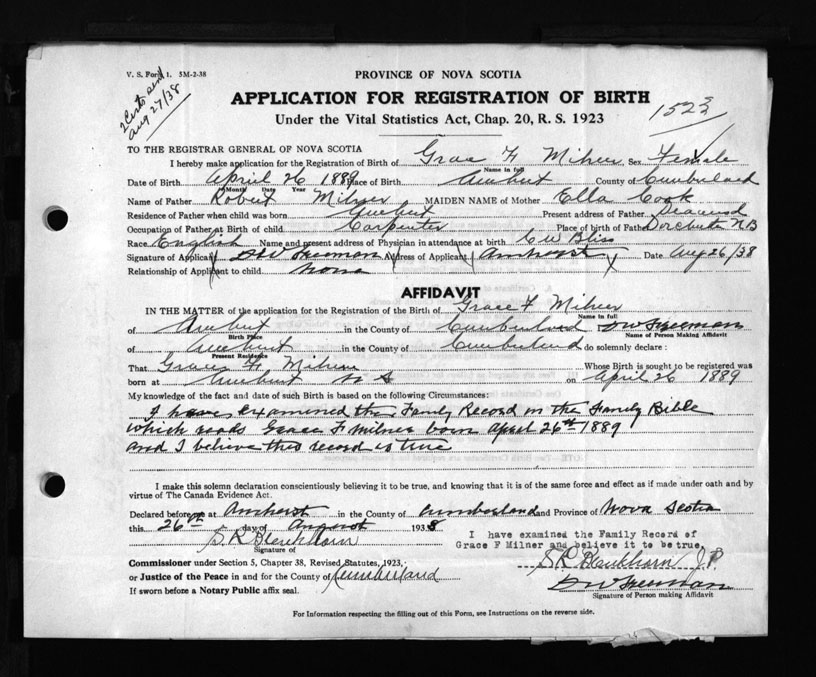 V. S. Form 1. 5M-2-38
PROVINCE OF NOVA SCOTIA
2 Certs sent
Aug 27/38
APPLICATION FOR REGISTRATION OF BIRTH
Under the Vital Statistics Act, Chap. 20, R. S. 1923
TO THE REGISTRAR GENERAL OF NOVA SCOTIA
I hereby make application for the Registration of Birth of Grace F Milner Sex Female
Name in full
Date of Birth April 26 1889 Place of Birth Amherst County of Cumberland
Month Date Year
Name of Father Robert Milner MAIDEN NAME of Mother Ella Cook
Residence of Father when child was born Amherst Present address of Father Deceased
Occupation of Father at Birth of child Carpenter Place of birth of Father Dorchester N B
Race English Name and present address of Physician in attendance at birth C W Bliss
Signature of Applicant D W Freeman Address of Applicant Amherst Date Aug 26/38
Relationship of Applicant to child None
AFFIDAVIT
IN THE MATTER of the application for the Registration of the Birth of Grace F Milner
Name in full
of Amherst in the County of Cumberland D W Freeman
Birth Place Name of Person Making Affidavit
of Amherst in the County of Cumberland do solemnly declare:
Present Residence
That Grace F Milner Whose Birth is sought to be registered was
born at Amherst N S on April 26 1889
My knowledge of the fact and date of such Birth is based on the following Circumstances:
I have examined the Family Record in the Family Bible
which reads Grace F Milner born April 26th 1889
and I believe this record is true
I make this solemn declaration conscientiously believing it to be true, and knowing that it is of the same force and effect as if made under oath and by
virtue of The Canada Evidence Act.
Declared before me at Amherst in the County of Cumberland and Province of Nova Scotia
this 26th day of August 1938
S R Blenkhorn
Signature of
I have examined the Family Record of
Grace F Milner and believe it to be true
Commissioner under Section 5, Chapter 38, Revised Statutes, 1923,
S R Blenkhorn J.P.
or Justice of the Peace in and for the County of Cumberland
D W Freeman
If sworn before a Notary Public affix seal.
Signature of Person making Affidavit
For Information respecting the filling out of this Form, see Instructions on the reverse side.